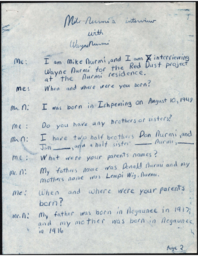 Mr. Nurmi's interview
with
Wayne Nurmi
Me: I am Mike Nurmi, and I am interviewing
Wayne Nurmi for the Red Dust project
at the Nurmi residence.
Me: When and where were you born?
Mr. N: I was born in Ishpeming on August 10, 1943
Me: Do you have any brothers or sisters?
Mr. N: I have two half brothers Dan Nurmi, and
and a half sister Nurmi,
Me: What were your parents names?
Mr. N: My fathers name was Nurmi and my
mothers name was Nurmi.
Me: When and where were your parents
born?
Mr. N: My father was born in Negaunee in 1917,
and my mother was born in Negaunee
in 1916
Page